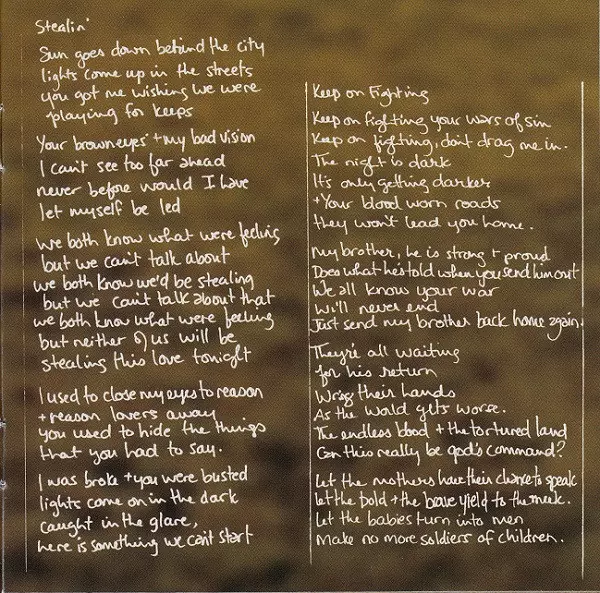 Stealin'
Sun goes down behind the city
lights come up in the streets
you got me wishing we were
playing for keeps
Your brown eyes + my bad vision
I can't see too far ahead
never before would I have
let myself be led
We both know what were feeling
but we can't talk about
we both know we'd be stealing
but we can't talk about that
we both know what were feeling
but neither of us will be
stealing this love tonight
I used to close my eyes to reason
+ reason lovers away
you used to hide the things
that you had to say.
I was broke + you were busted
lights come on in the dark
caught in the glare,
here is something we can't start
Keep on Fighting
Keep on fighting your wars of sin
Keep on fighting, don't drag me in.
The night is dark
It's only getting darker
+ Your blood worn roads
they won't lead you home.
My brother, he is strong + proud
Does what he's told when you send him out
We all know your war
will never end
Just send my brother back home again.
They're all waiting
for his return
Wring their hands
As the world gets worse.
The endless blood + the tortured land
Can this really be god's command?
Let the mothers have their chance to speak
let the bold + the brave yield to the meek.
Let the babies turn into men
Make no more soldiers of children.